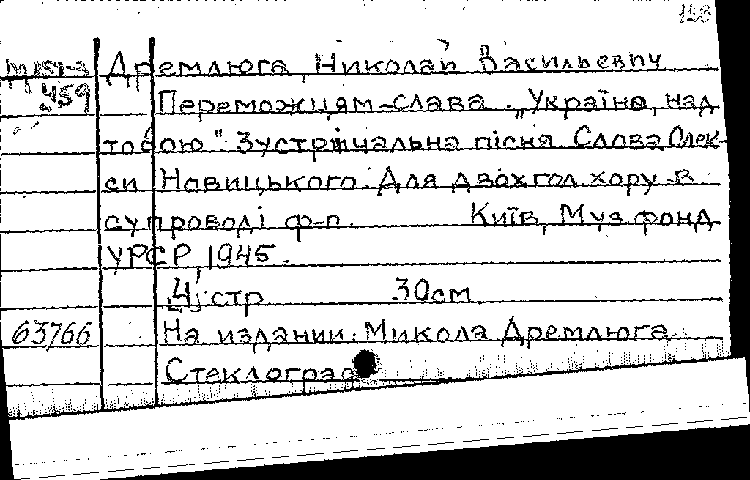 128
М 151-3 Дремлюга, Николай Васильевич
459 Переможцям-слава. „Україно, над
тобою" Зустрічальна пісня Слова Олек-
си Новицького. Для двохгол. хору в
супроводі ф-п. Київ, Муз фонд
УРСР, 1945.
[4] стр 30см.
63766 На издании: Микола Дремлюга
Стеклограф